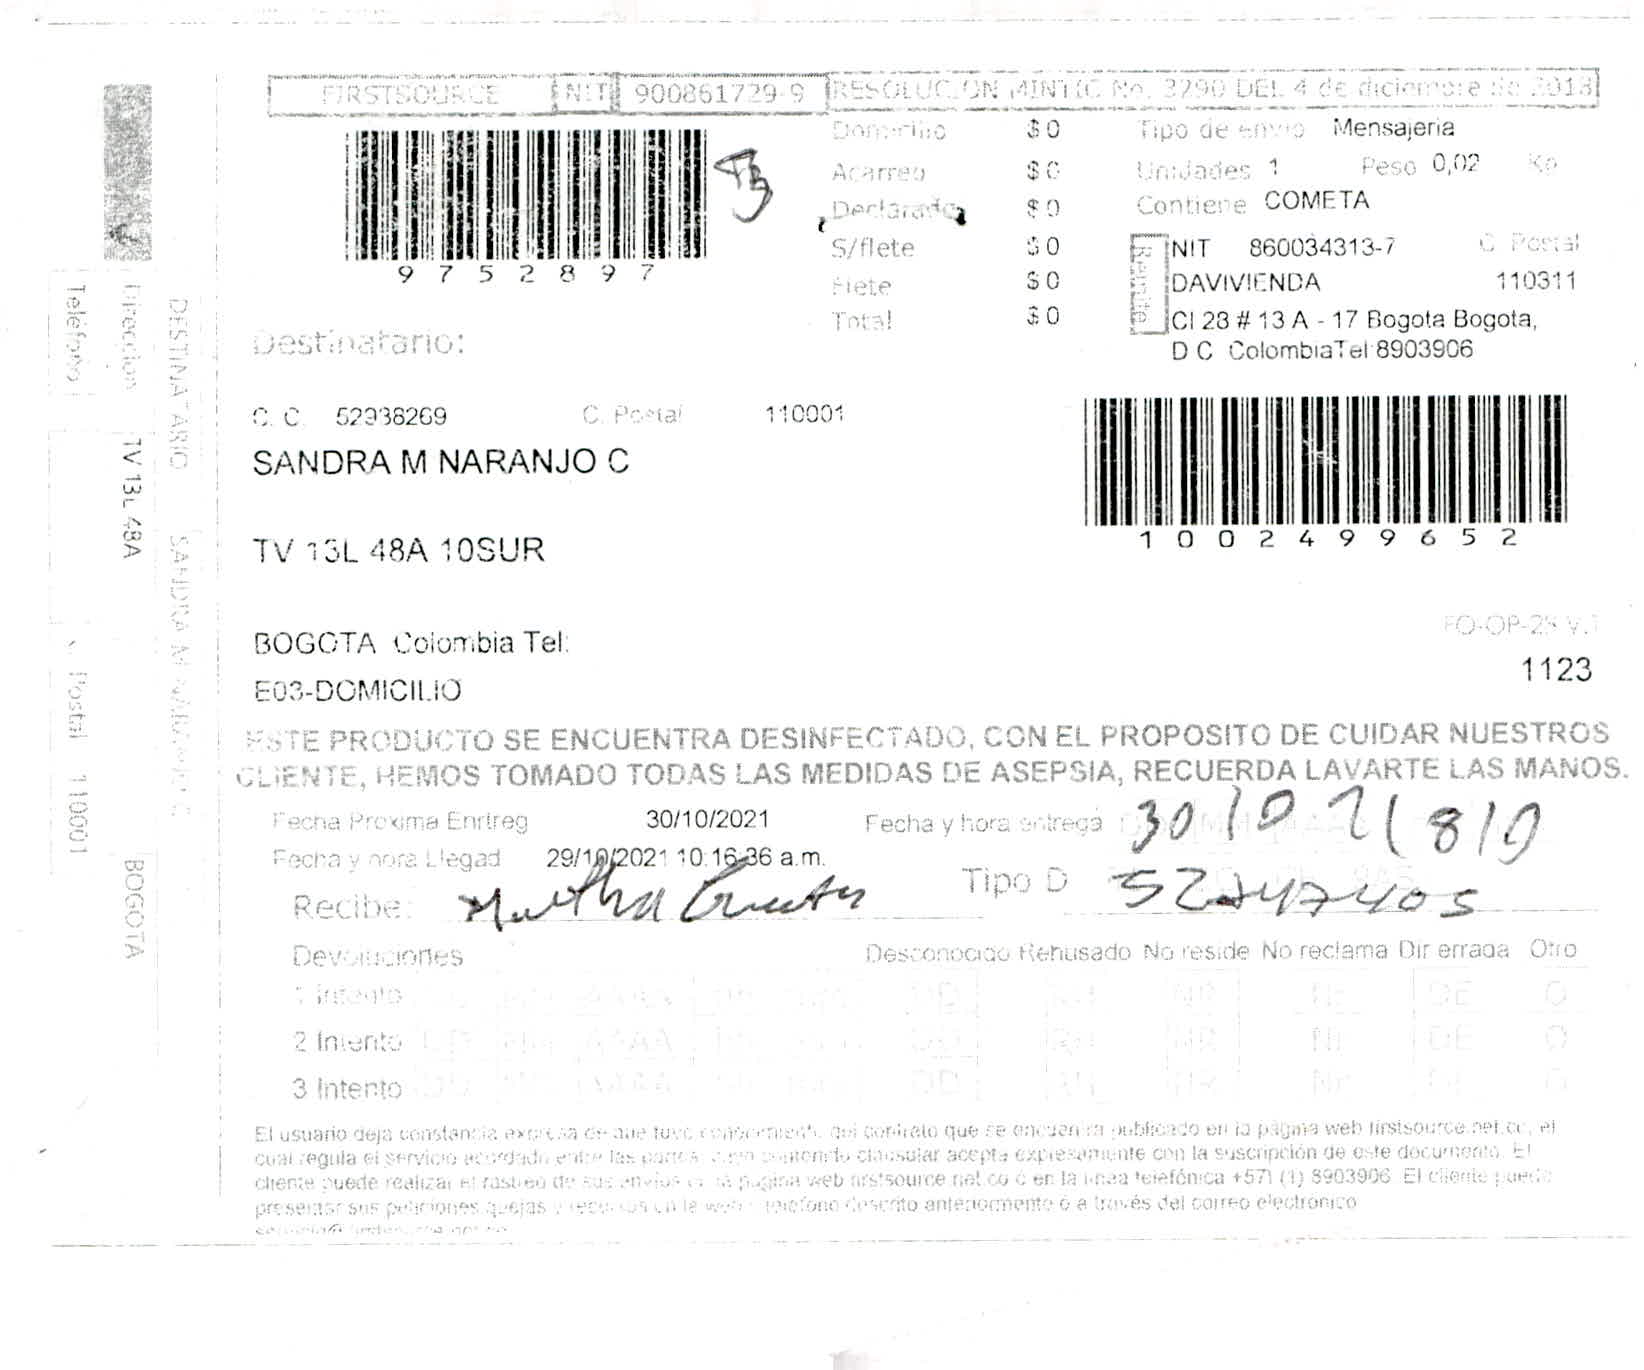 FIRSTSOURCE NIT 900861729-9 RESOLUCION MINTIC No. 3290 DEL 4 de diciembre de 2018
Domicilio $ 0 Tipo de envio Mensajeria
Acarreo $ 0 Unidades 1 Peso 0,02 Kg
Declarado $ 0 Contiene COMETA
S/flete $ 0 Remite NIT 860034313-7 C Postal
Flete $ 0 DAVIVIENDA 110311
Total $ 0 Cl 28 # 13 A - 17 Bogota Bogota,
D C ColombiaTel 8903906
9752897
Destinatario:
C. C. 52938269 C. Postal 110001
SANDRA M NARANJO C
1002499652
TV 13L 48A 10SUR
BOGOTA Colombia Tel:
FO-OP-25 V.1
1123
E03-DOMICILIO
ESTE PRODUCTO SE ENCUENTRA DESINFECTADO, CON EL PROPOSITO DE CUIDAR NUESTROS
CLIENTE, HEMOS TOMADO TODAS LAS MEDIDAS DE ASEPSIA, RECUERDA LAVARTE LAS MANOS.
Fecha Proxima Entreg 30/10/2021 Fecha y hora entrega 30 10 21 810
Fecha y hora Llegad 29/10/2021 10:16:36 a.m.
Recibe: Martha Tipo D
Devoluciones Desconocido Rehusado No reside No reclama Dir errada Otro
1 Intento DD RH NR NR DE O
2 Intento DD MM AAAA DD RH NR NR DE O
3 Intento DD MM AAAA DD RH NR NR DE O
El usuario deja constancia expresa de que tuvo conocimiento del contrato que se encuentra publicado en la pagina web firstsource.net.co, el
cual regula el servicio acordado entre las partes, cuyo contenido clausular acepta expresamente con la suscripción de este documento. El
cliente puede realizar el rastreo de sus envios en la pagina web firstsource.net.co ó en la linea telefónica +571 (1) 8903906 El cliente puede
presentar sus peticiones quejas y recursos en la web o telefono descrito anteriormente ó a través del correo electronico
Teléfono
C Postal 110001
Direccion TV 13L 48A BOGOTA
DESTINATARIO SANDRA M NARANJO C